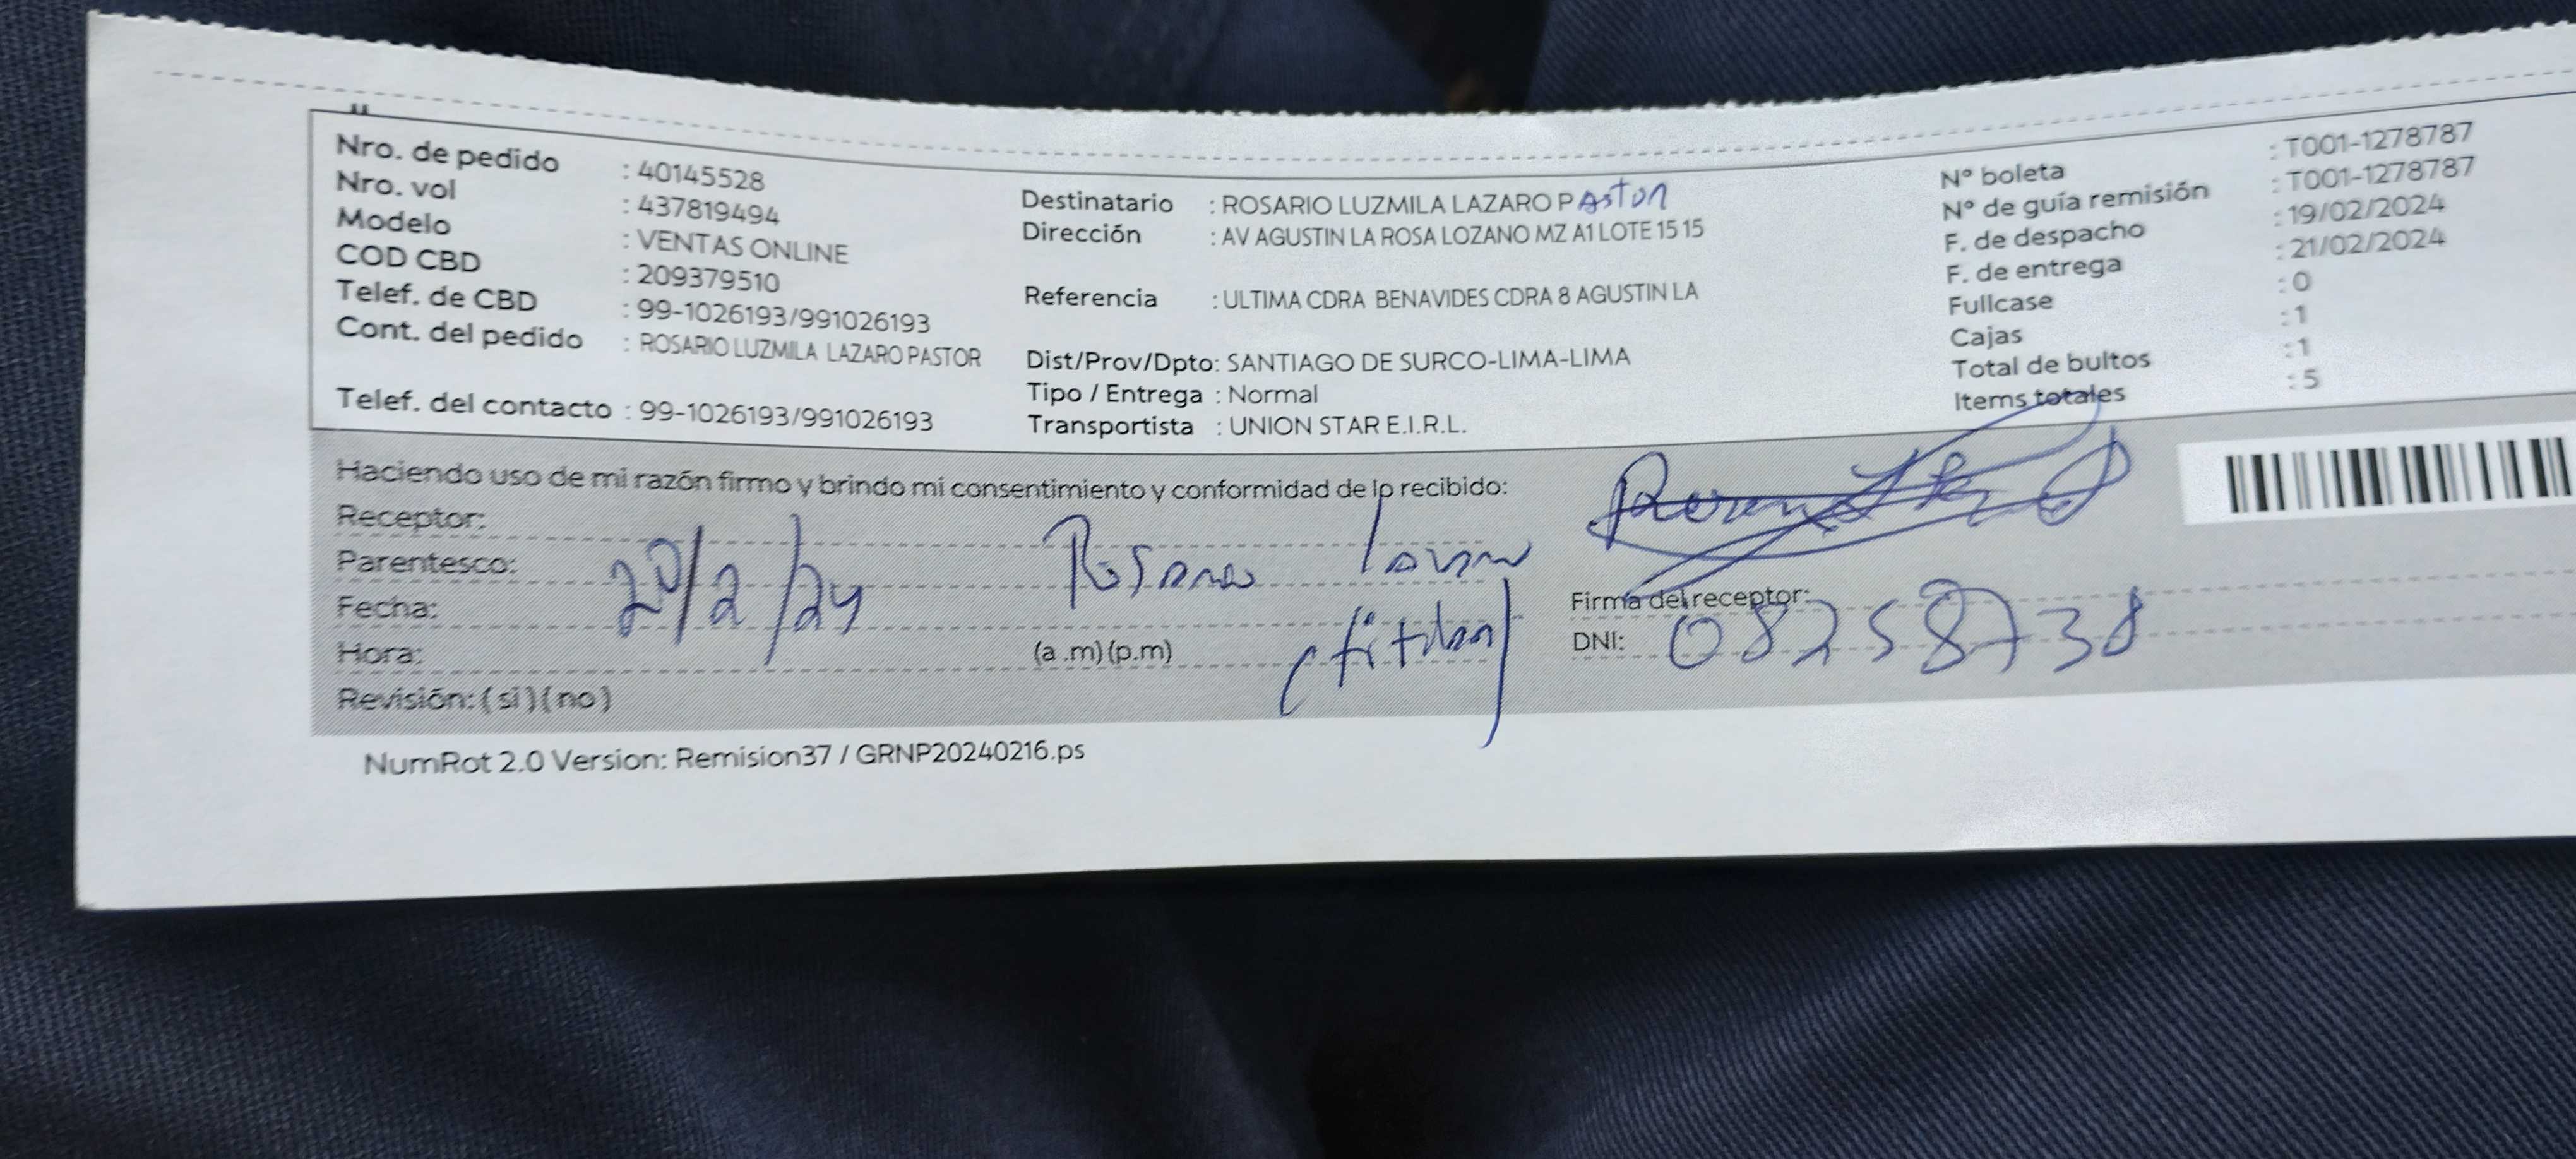 Nro. de pedido : 40145528
Nro. vol : 437819494
Modelo : VENTAS ONLINE
COD CBD : 209379510
Telef. de CBD : 99-1026193/991026193
Cont. del pedido : ROSARIO LUZMILA LAZARO PASTOR
Telef. del contacto : 99-1026193/991026193
Destinatario : ROSARIO LUZMILA LAZARO PAston
Dirección : AV AGUSTIN LA ROSA LOZANO MZ A1 LOTE 15 15
Referencia : ULTIMA CDRA BENAVIDES CDRA 8 AGUSTIN LA
Dist/Prov/Dpto: SANTIAGO DE SURCO-LIMA-LIMA
Tipo / Entrega : Normal
Transportista : UNION STAR E.I.R.L.
N° boleta : T001-1278787
N° de guía remisión : T001-1278787
F. de despacho : 19/02/2024
F. de entrega : 21/02/2024
Fullcase : 0
Cajas : 1
Total de bultos : 1
Items totales : 5
Haciendo uso de mi razón firmo y brindo mi consentimiento y conformidad de lo recibido:
Receptor:
Parentesco: Rosario
Fecha: 20/2/24
Hora: (a .m)(p.m) (titular)
Revisión: ( si ) ( no )
Firma del receptor:
DNI: 08258738
NumRot 2.0 Version: Remision37 / GRNP20240216.ps